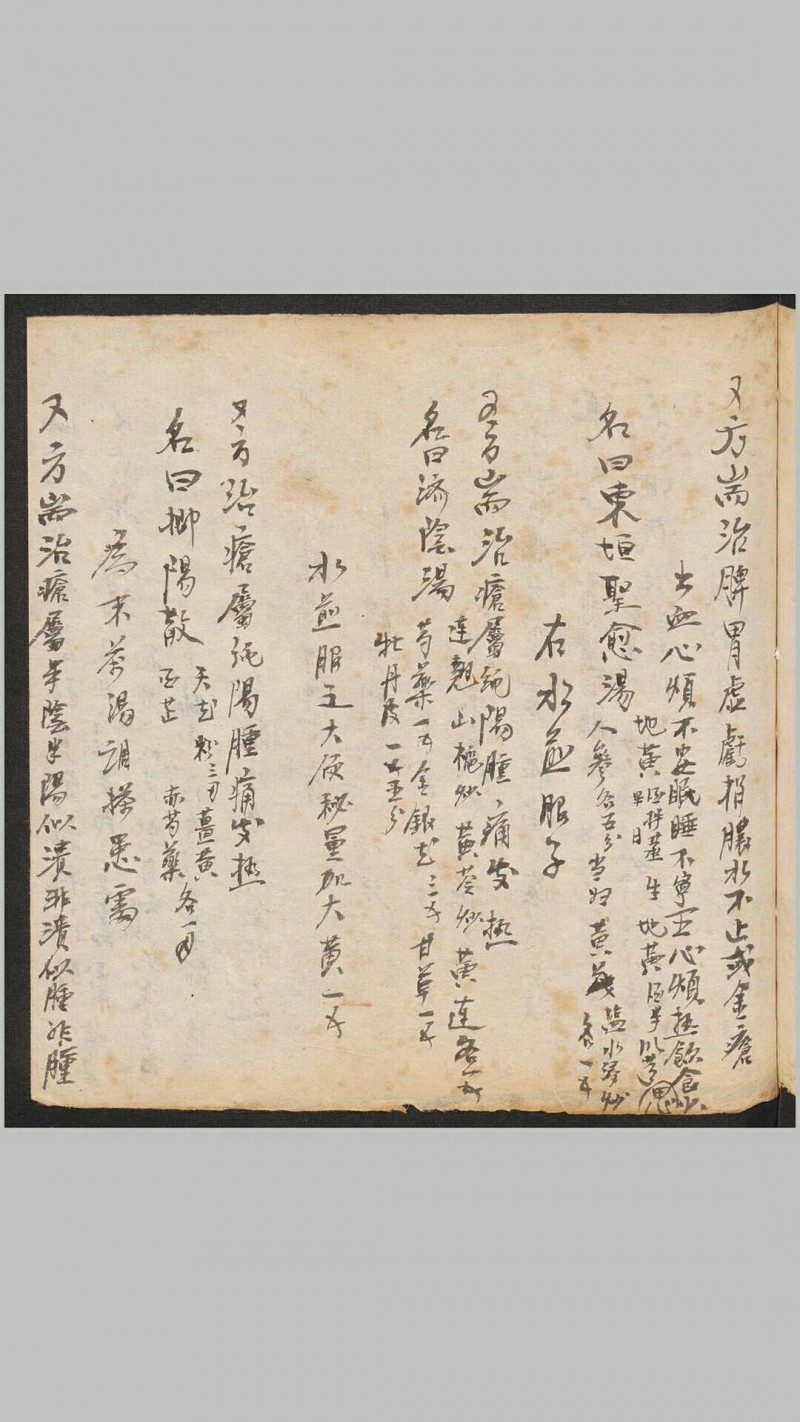 又方耑治脾胃虛虧損膿水不止或金瘡
出血心煩不安眠睡不寧五心煩熱飲食少
名曰東垣聖愈湯
地黃酒拌蒸半日 生地黃酒
人參各五分 當归 黃芪塩水浸炒各一𠦑
右水煎服
又方耑治瘡屬純陽腫痛发热
名曰济陰湯
連翹 山梔炒 黃芩炒 黃連各一𠦑
芍藥一𠦑 金銀花三𠦑 甘草一𠦑
牡丹皮一𠦑五分
水煎服之大便秘量加大黃一𠦑
又方治瘡屬純陽腫痛发热
名曰抑陽散
天花粉三刃 薑黃
白芷 赤芍藥各一刃
為末茶湯調搽患處
又方耑治瘡屬半陰半陽似潰非潰似腫非腫